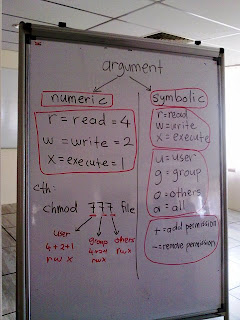 argument
numeric
r = read = 4
w = write = 2
x = execute = 1
cth:
chmod 777 file
user
4+2+1
rwx
group
4+2+1
rwx
others
rwx
symbolic
r=read
w=write
x=execute
u=user
g=group
o=others
a=all
+=add permission
-=remove permission